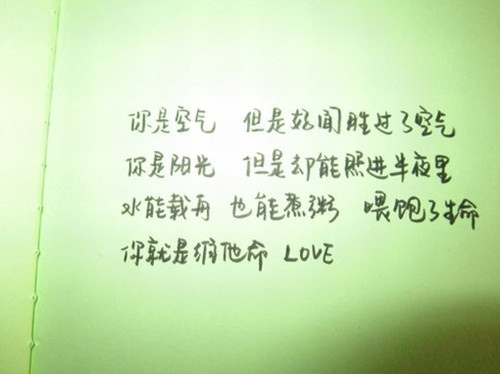 你是空气 但是好闻胜过了空气
你是阳光 但是却能照进半夜里
水能载舟 也能煮粥 喂饱了生命
你就是维他命 LOVE